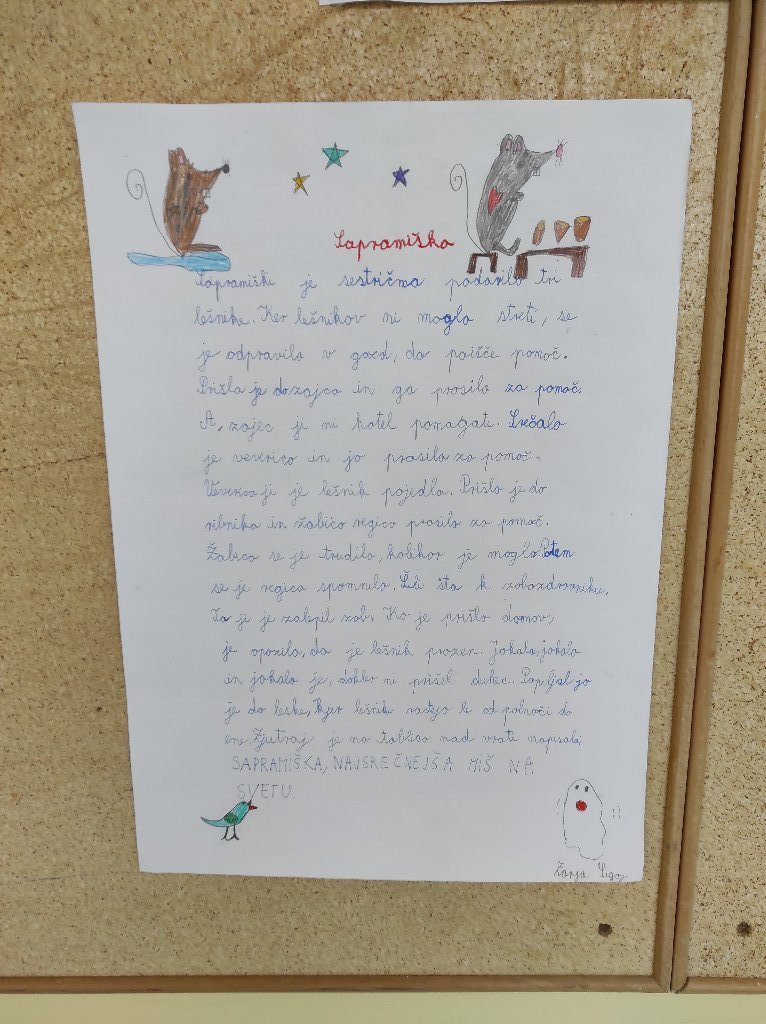 Sapramiška
Sapramiški je sestrična podarila tri
lešnike. Ker lešnikov ni mogla streti, se
je odpravila v gozd, da poišče pomoč.
Prišla je do zajca in ga prosila za pomoč.
A, zajec ji ni hotel pomagati. Srečala
je veverico in jo prosila za pomoč.
Veverica ji je lešnik pojedla. Prišla je do
ribnika in žabico regico prosila za pomoč.
Žabica se je trudila, kolikor je mogla. Potem
se je regica spomnila. Šli sta k zobozdravniku.
Ta ji je zalepil zob. Ko je prišla domov,
je opazila, da je lešnik prazen. Jokala, jokala
in jokala je, dokler ni prišel dedec. Popeljal jo
je do leske, kjer lešniki rastejo le od polnoči do
ene. Zjutraj je na tablico nad vrati napisala:
SAPRAMIŠKA, NAJSREČNEJŠA MIŠ NA
SVETU.
Zarja